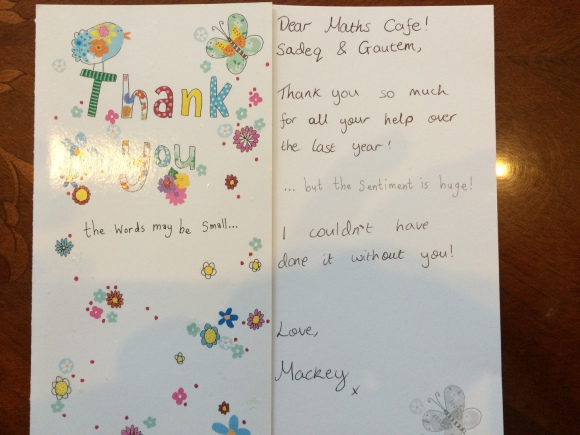 Thank
you
the words may be small...
Dear Maths Cafe!
Sadeq & Gautem,
Thank you so much
for all your help over
the last year!
... but the sentiment is huge!
I couldn't have
done it without you!
Love,
Mackey
x